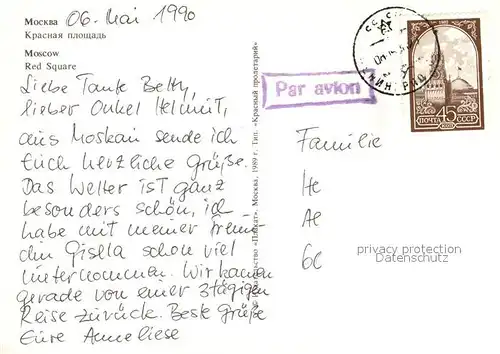 Москва 06. Mai 1990
Красная площадь
Moscow
Red Square
Liebe Tante Betty,
lieber Onkel Helmut,
aus Moskau sende ich
Euch herzliche Grüße.
Das Wetter ist ganz
besonders schön, ich
habe mit meiner Freun-
din Gisela schon viel
unternommen. Wir kamen
gerade von einer 3tägigen
Reise zurück. Beste Grüße
Eure Anneliese
Издательство «Плакат». Москва, 1989 г. Тип. «Красный пролетарий»
Par avion
ПОЧТА 45 СССР
Familie
He
Ae
60
privacy protection
Datenschutz